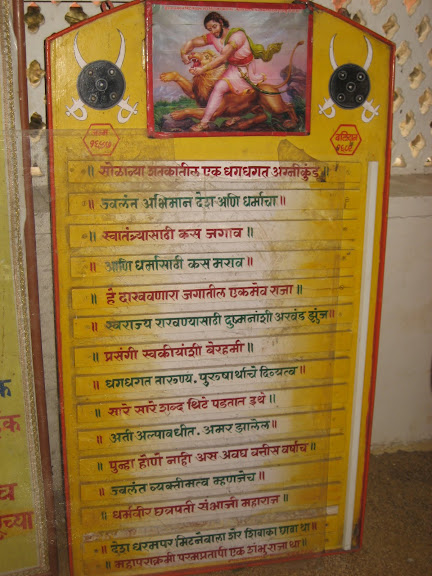 जन्म
१६५७
बलिदान
१६८९
॥ सोळाव्या शतकातील एक धगधगत अग्नीकुंड ॥
॥ ज्वलंत अभिमान देश अणि धर्माचा ॥
॥ स्वातंत्र्यासाठी कस जगाव ॥
॥ आणि धर्मासाठी कस मराव ॥
॥ हे दाखवणारा जगातील एकमेव राजा ॥
॥ स्वराज्य राखण्यासाठी दुष्मनांशी अखंड झुंज ॥
॥ प्रसंगी स्वकीयांशी बेरहमी ॥
॥ धगधगत तारुण्य. पुरूषार्थाचे दिव्यत्व ॥
॥ सारे सारे शब्द थिटे पडतात इथे ॥
॥ अती अल्पावधीत. अमर झालेल ॥
॥ पुन्हा होणे नाही अस अवघ बत्तीस वर्षाच ॥
॥ ज्वलंत व्यक्तीमत्व म्हणजेच ॥
॥ धर्मवीर छत्रपती संभाजी महाराज ॥
॥ देश धरमपर मिटनेवाला शेर शिवाका छावा था ॥
॥ महापराक्रमी परमप्रतापी एक शंभू राजा था ॥